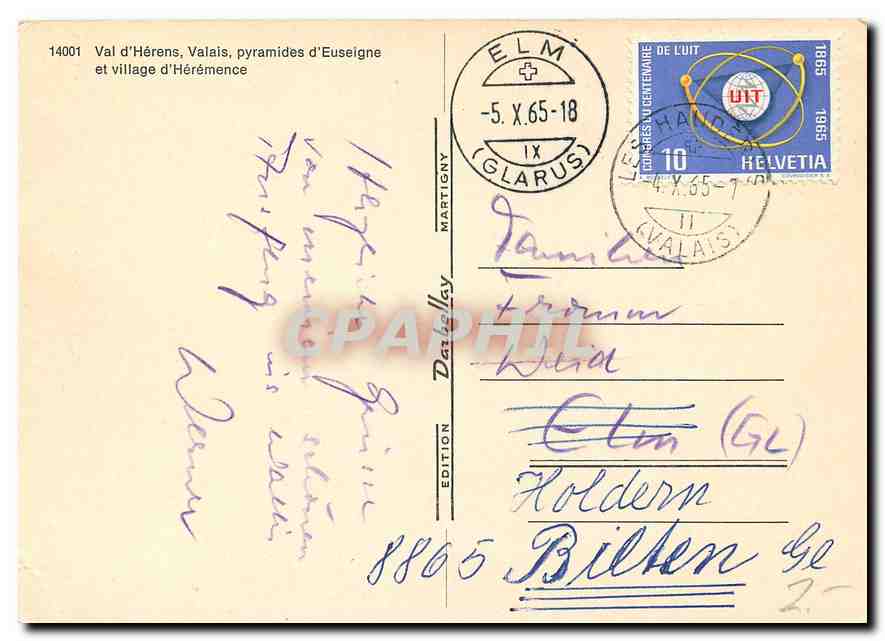 14001 Val d'Hérens, Valais, pyramides d'Euseigne
et village d'Hérémence
Herzliche Grüsse
von meinem schönen
Ausflug ins Wallis
Werner
EDITION Darbellay MARTIGNY
CPAPHIL
ELM
-5. X. 65-18
IX
(GLARUS)
CONGRÈS DU CENTENAIRE DE L'UIT
1865 1965
UIT
10 HELVETIA
COURVOISIER S.A.
LES HAUDÈRES
-4. X. 65-7
II
(VALAIS)
Familie
Weid
Elm (GL)
Holdern
8865 Bilten Gl
2.-